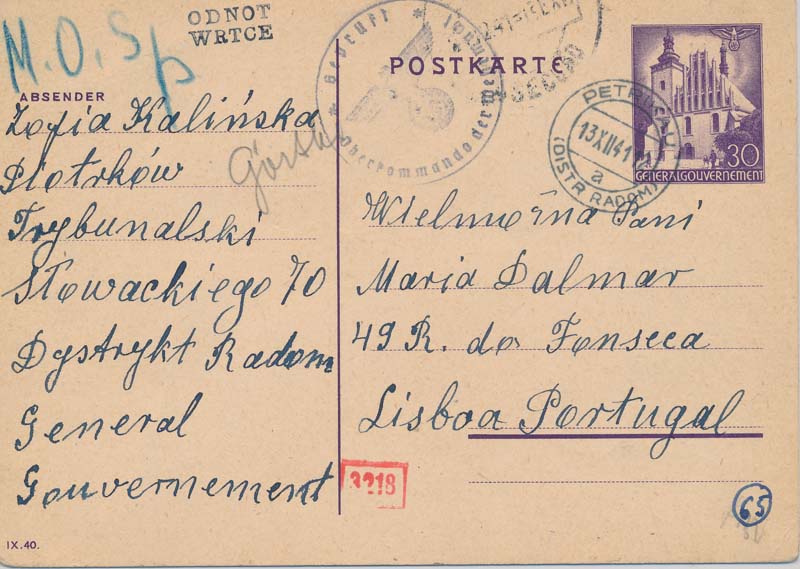 M.O.Sp
ODNOT
WRTCE
POSTKARTE
ABSENDER
Zofia Kalińska
Piotrków
Trybunalski
Słowackiego 70
Dystrykt Radom
General
Gouvernement
Geprüft
Oberkommando der
13XII41
a
(DISTR RADOM)
30
GENERALGOUVERNEMENT
Wielmożna Pani
Maria Dalmar
49 R. do Fonseca
Lisboa Portugal
3218
65
IX.40.